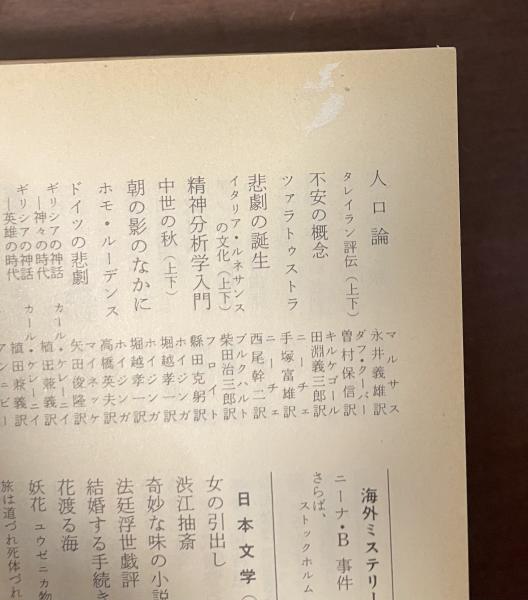 人口論
マルサス
永井義雄訳
タレイラン評伝(上下)
ダフ・クーパー
曽村保信訳
不安の概念
キルケゴール
田淵義三郎訳
ツァラトゥストラ
ニーチェ
手塚富雄訳
悲劇の誕生
ニーチェ
西尾幹二訳
イタリア・ルネサンスの文化(上下)
ブルクハルト
柴田治三郎訳
精神分析学入門
フロイト
懸田克躬訳
中世の秋(上下)
ホイジンガ
堀越孝一訳
朝の影のなかに
ホイジンガ
堀越孝一訳
ホモ・ルーデンス
ホイジンガ
高橋英夫訳
ドイツの悲劇
マイネッケ
矢田俊隆訳
ギリシアの神話
―神々の時代
カール・ケレーニイ
植田兼義訳
ギリシアの神話
―英雄の時代
カール・ケレーニイ
植田兼義訳
海外ミステリー
ニーナ・B事件
さらば、
ストックホルム
日本文学
女の引出し
渋江抽斎
奇妙な味の小説
法廷浮世戯評
結婚する手続き
花渡る海
妖花 ユウゼニカ物
旅は道づれ死体づれ